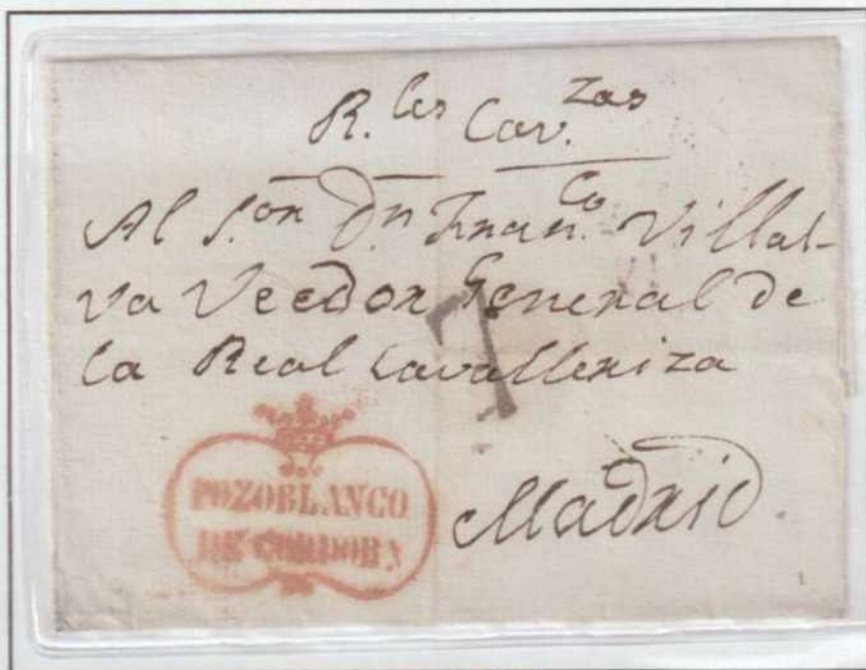 R.les Cav.zas
Al S.or Dn Fran.co Villal-
va Veedor General de
la Real Cavalleriza
7
Madrid.
POZOBLANCO
DE CORDOBA